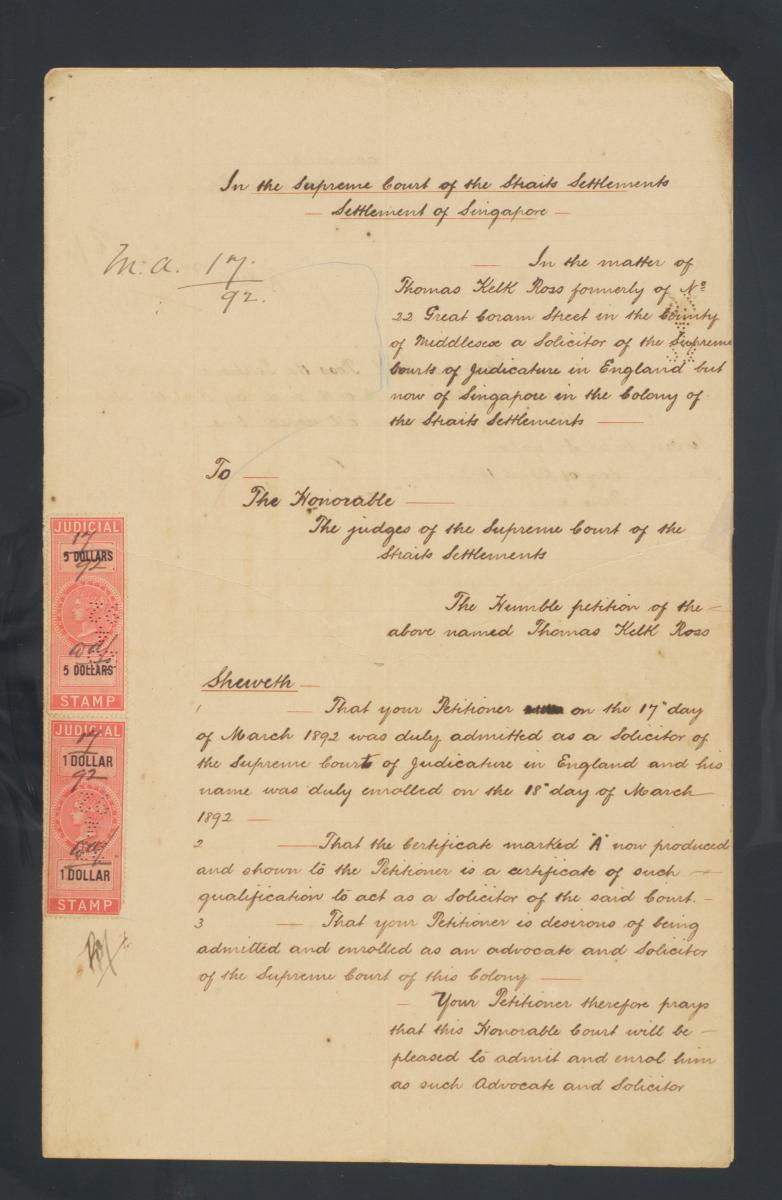 In the Supreme Court of the Straits Settlements
— Settlement of Singapore —
M.A. 17.
92.
— In the matter of
Thomas Kelk Ross formerly of Nº
22 Great Coram Street in the County
of Middlesex a Solicitor of the Supreme
Courts of Judicature in England but
now of Singapore in the Colony of
the Straits Settlements —
To —
The Honorable —
The judges of the Supreme Court of the
Straits Settlements
The Humble petition of the —
above named Thomas Kelk Ross
Sheweth —
1 — That your Petitioner on the 17" day
of March 1892 was duly admitted as a Solicitor of
the Supreme Court of Judicature in England and his
name was duly enrolled on the 18" day of March
1892 —
2 — That the Certificate marked "A" now produced
and shown to the Petitioner is a certificate of such —
qualification to act as a Solicitor of the said Court. —
3 — That your Petitioner is desirous of being
admitted and enrolled as an advocate and Solicitor
of the Supreme Court of this Colony —
— Your Petitioner therefore prays
that this Honorable Court will be —
pleased to admit and enrol him
as such Advocate and Solicitor
JUDICIAL
17
5 DOLLARS
92
5 DOLLARS
STAMP
JUDICIAL
17
1 DOLLAR
92
1 DOLLAR
STAMP